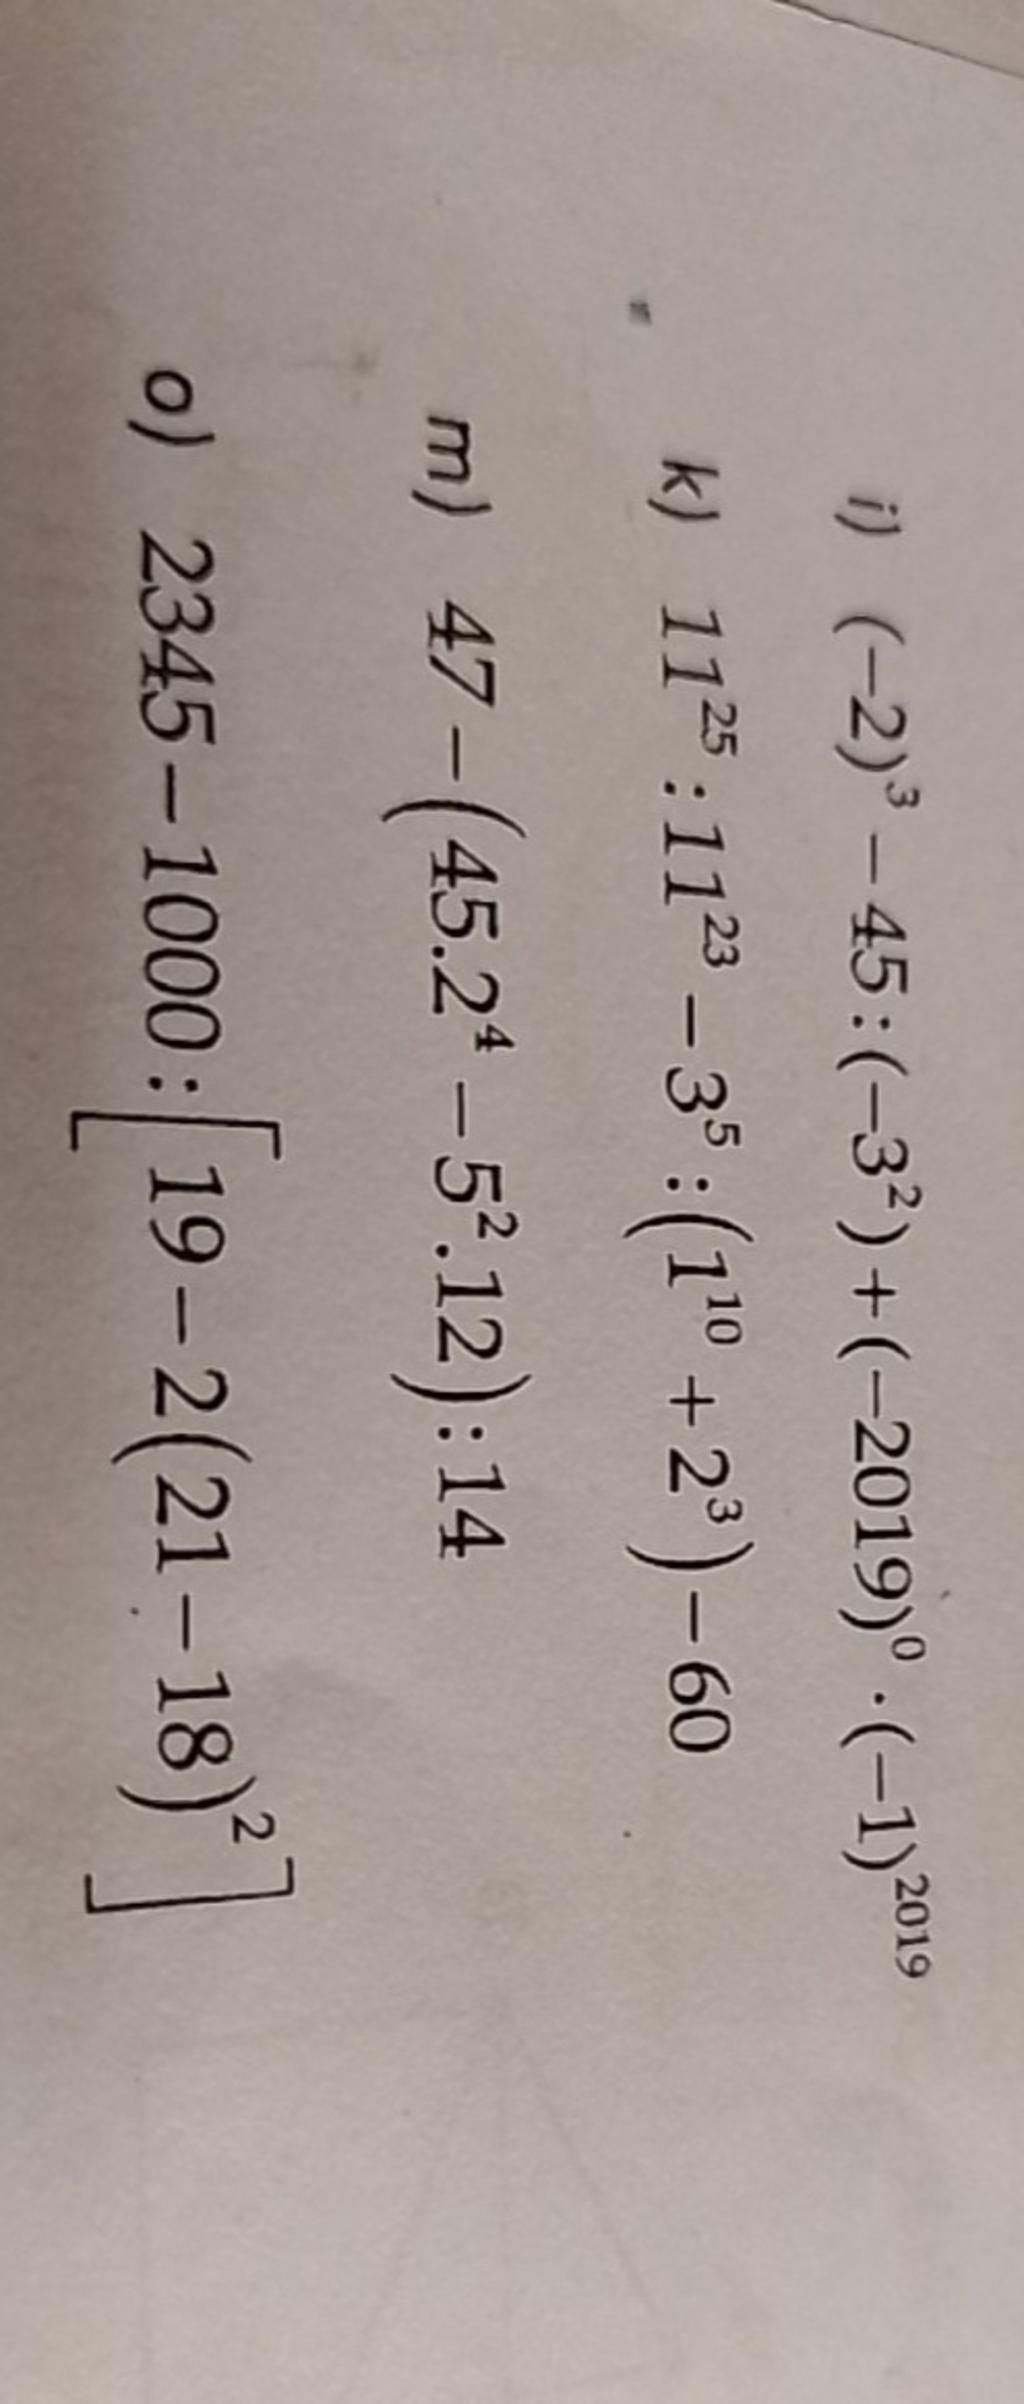 i) (−2)³ − 45 : (−3²) + (−2019)⁰ · (−1)²⁰¹⁹
k) 11²⁵ : 11²³ − 3⁵ : (1¹⁰ + 2³) − 60
m) 47 − (45.2⁴ − 5².12) : 14
o) 2345 − 1000 : [19 − 2(21 − 18)²]